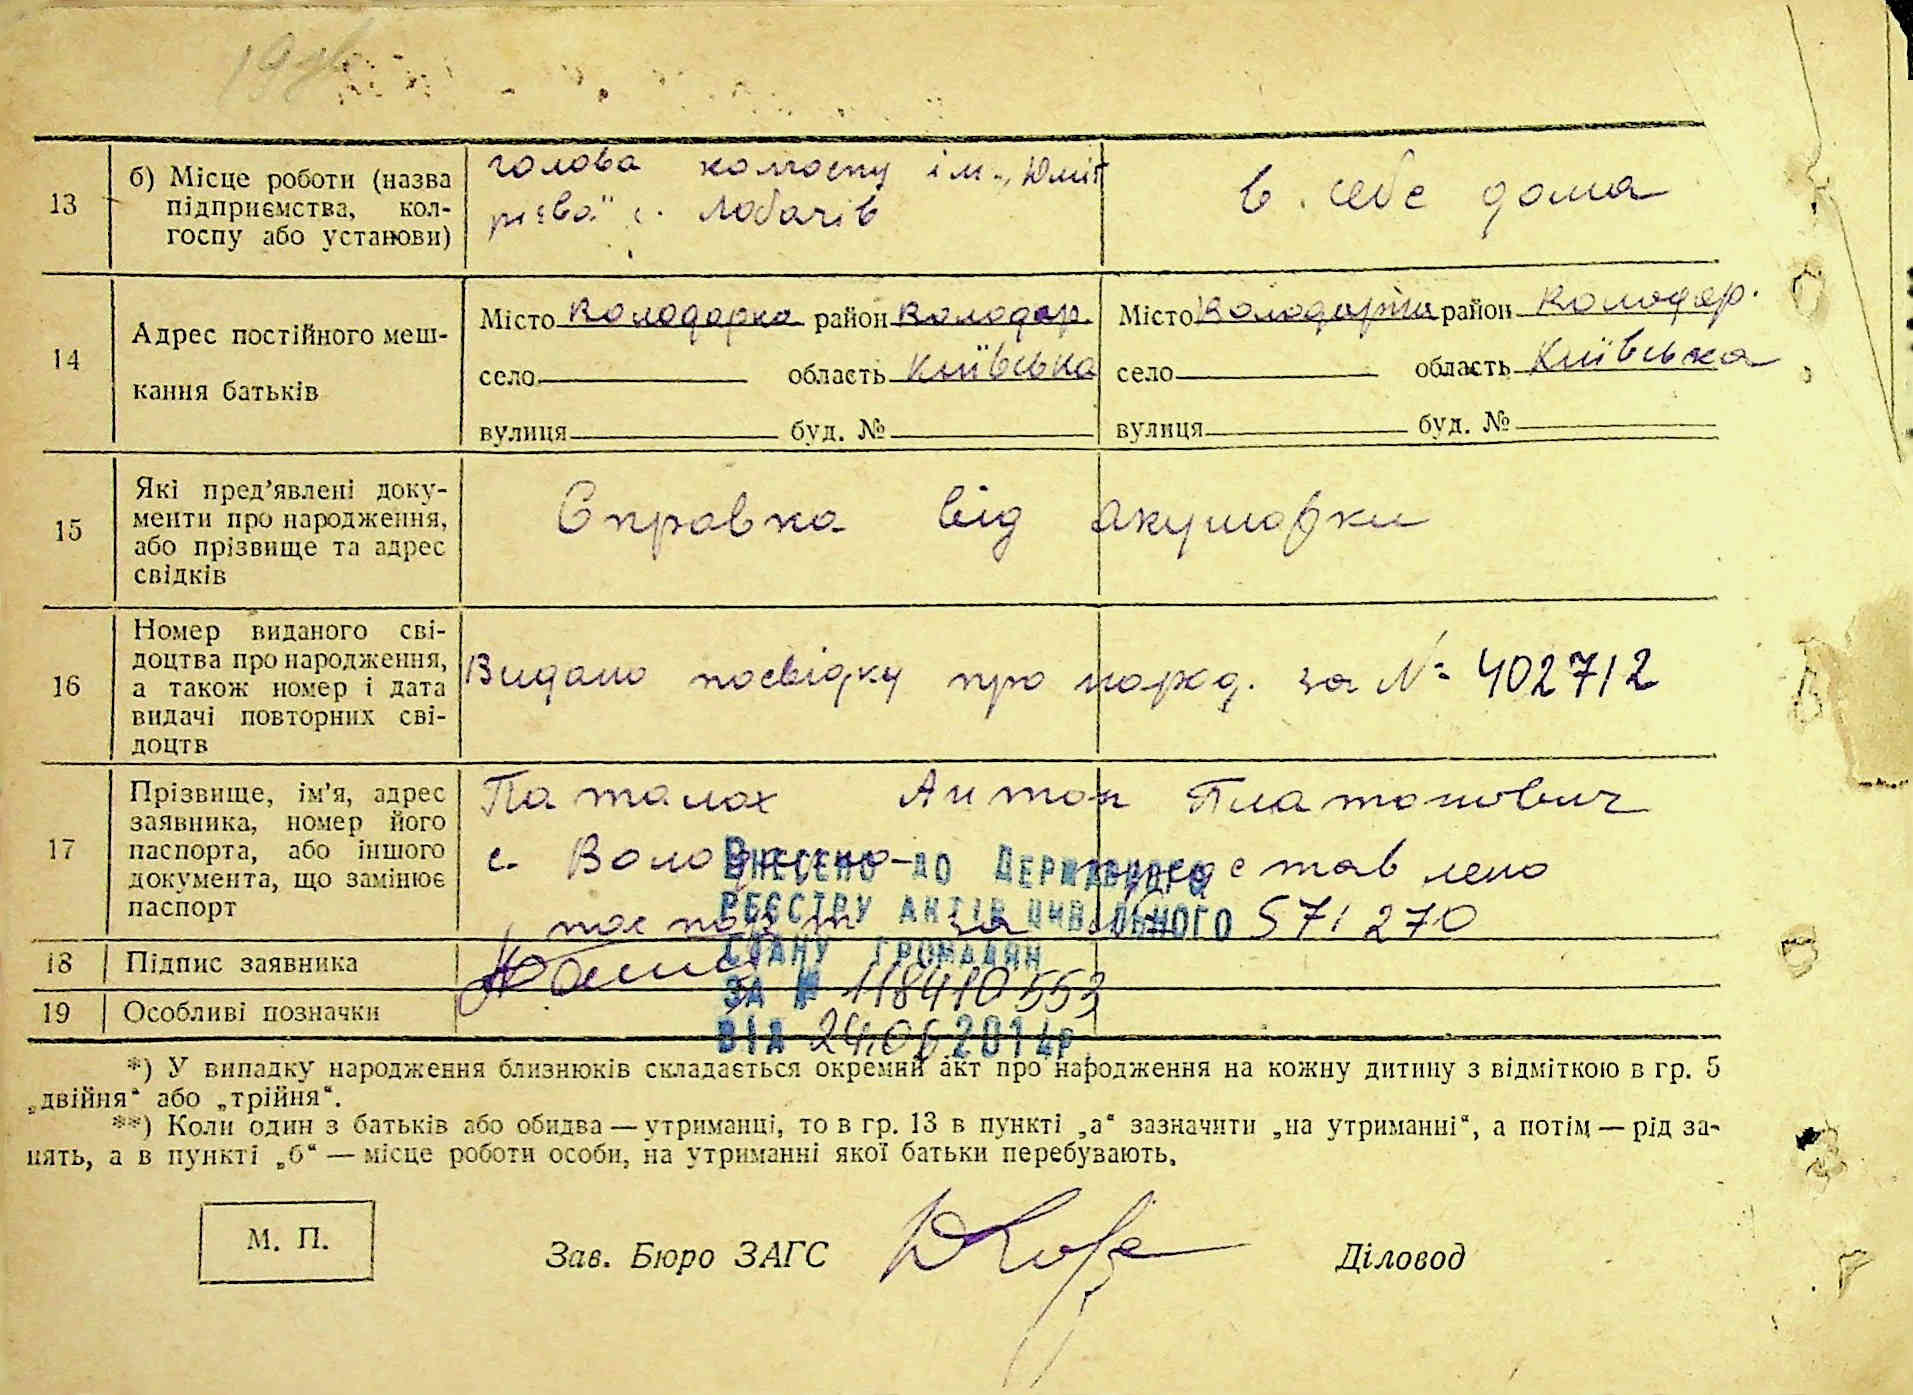 13
б) Місце роботи (назва
підприємства, кол-
госпу або установи)
голова колгоспу ім.
с. Лобачів
в себе дома
14
Адрес постійного меш-
кання батьків
Місто Володарка район Володар.
село область Київська
вулиця буд. №
Місто район Володар.
село область Київська
вулиця буд. №
15
Які пред’явлені доку-
менти про народження,
або прізвище та адрес
свідків
Справка від акушарки
16
Номер виданого сві-
доцтва про народження,
а також номер і дата
видачі повторних сві-
доцтв
Видано посвідку про народ. за № 402712
17
Прізвище, ім’я, адрес
заявника, номер його
паспорта, або іншого
документа, що замінює
паспорт
Паталах Антон Платонович
с. представлено
паспорт за № 571270
18
Підпис заявника
19
Особливі позначки
ВНЕСЕНО ДО ДЕРЖАВНОГО
РЕЄСТРУ АКТІВ ЦИВІЛЬНОГО
СТАНУ ГРОМАДЯН
ЗА № 118410553
ВІД 24.06 2014р
*) У випадку народження близнюків складається окремий акт про народження на кожну дитину з відміткою в гр. 5
„двійня“ або „трійня“.
**) Коли один з батьків або обидва — утриманці, то в гр. 13 в пункті „а“ зазначити „на утриманні“, а потім — рід за-
нять, а в пункті „б“ — місце роботи особи, на утриманні якої батьки перебувають.
М. П.
Зав. Бюро ЗАГС
Діловод